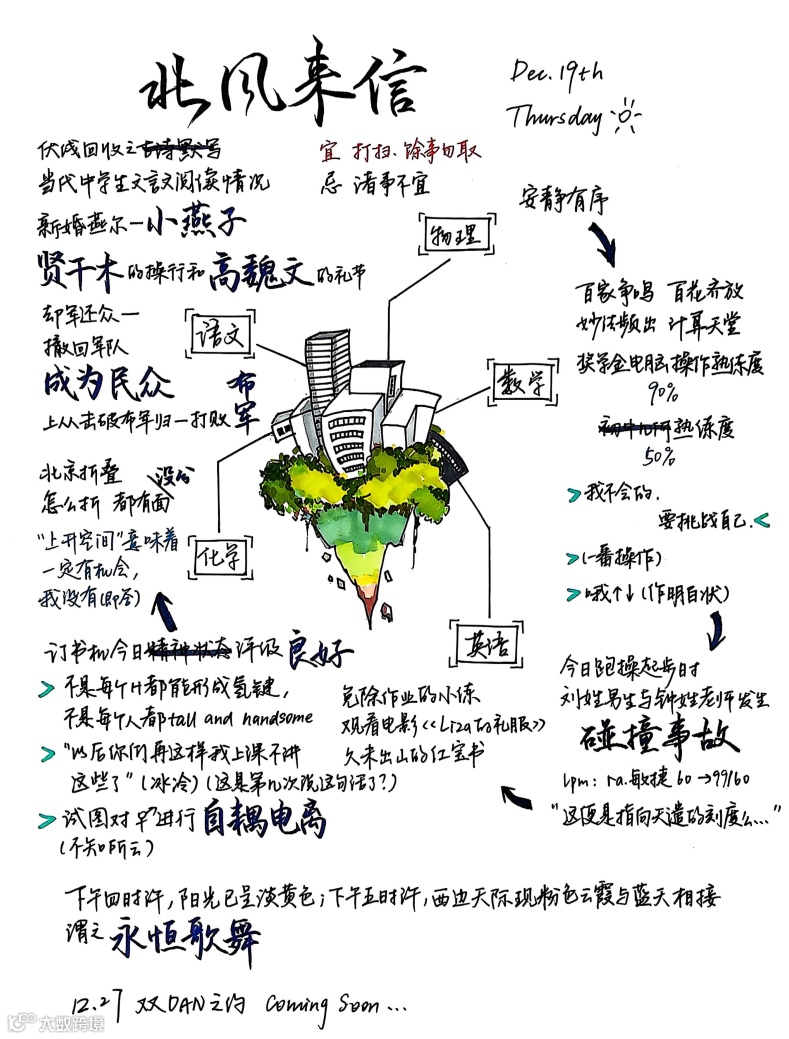 北风来信
Dec. 19th
Thursday
伏线回收之古诗默写
宜 打扫.馀事勿取
当代中学生文言文阅读情况
忌 诸事不宜
新婚燕尔—小燕子
贤干木的操行和高魏文的礼节
却军还众—
撤回军队
成为民众
上从击破布军归—打败布军
语文
物理
数学
化学
英语
北京折叠
怎么折 都有面 没分
"上开空间"意味着
一定有机会,
我没有(即答)
订书机今日精神状态评级良好
> 不是每个H都能形成氢键,
不是每个人都tall and handsome
> "以后你们再这样我上课不讲
这些了"(冰冷)(这是第几次说这句话了?)
> 试图对 进行自耦电离
(不知所云)
免除作业的小练
观看电影<<Liza的礼服>>
久未出山的红宝书
安静有序
百家争鸣 百花齐放
妙法频出 计算天堂
奖学金电脑操作熟练度
90%
初中几何熟练度
50%
> 我不会的.
要挑战自己.<
> (一番操作)
> 哦↑↓(作明白状)
今日跑操起步时
刘姓男生与钟姓老师发生
碰撞事故
lpm: ra.敏捷 60→99/60
"这便是指向天造的刻度么..."
下午四时许,阳光已呈淡黄色;下午五时许,西边天际现粉色云霞与蓝天相接
谓之永恒歌舞
12.27 双DAN之约 Coming Soon...
大数跨境